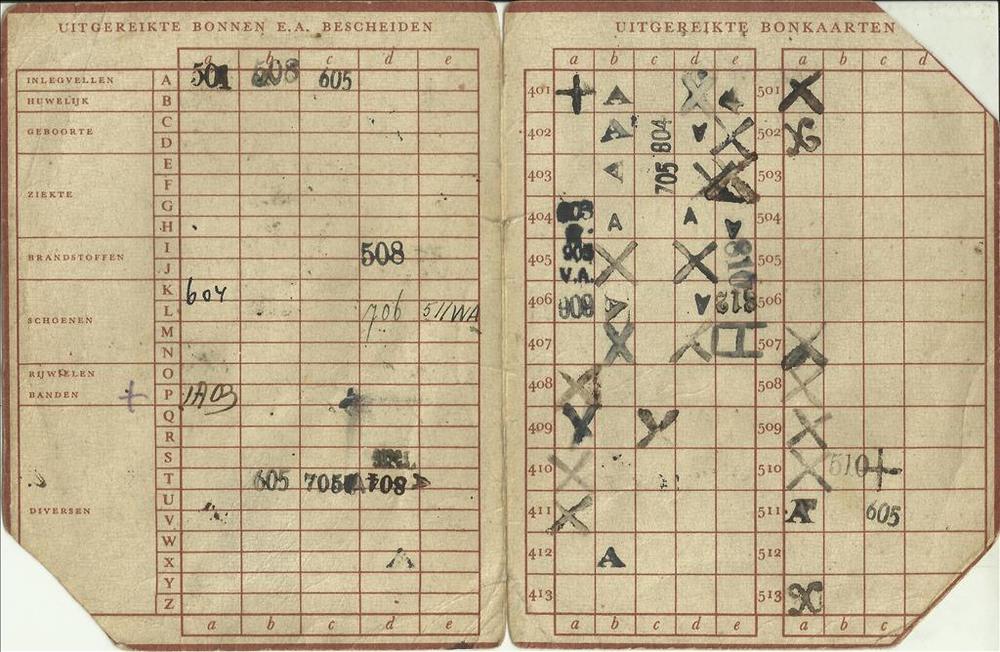 UITGEREIKTE BONNEN E.A. BESCHEIDEN
a b c d e
INLEGVELLEN A 501 508 605
HUWELIJK B
C
GEBOORTE
D
E
ZIEKTE F
G
H
I 508
BRANDSTOFFEN
J
K 604
L 706 511WA
SCHOENEN
M
N
RIJWIELEN O
BANDEN + P 1A03
Q
R
S
T 605 705 708
U
DIVERSEN
V
W
X A
Y
Z
a b c d e
UITGEREIKTE BONKAARTEN
a b c d e a b c d
401 A X 501 X
402 A 804 A 502
403 A 705 503
404 A A A 504
405 905 X X 810 505
V.A.
406 908 A A 812 506
407 X X 507 X
408 X 508 X
409 X X 509 X
410 X 510 X 510 +
411 X 511 A 605
412 A 512
413 513 X
a b c d e a b c d